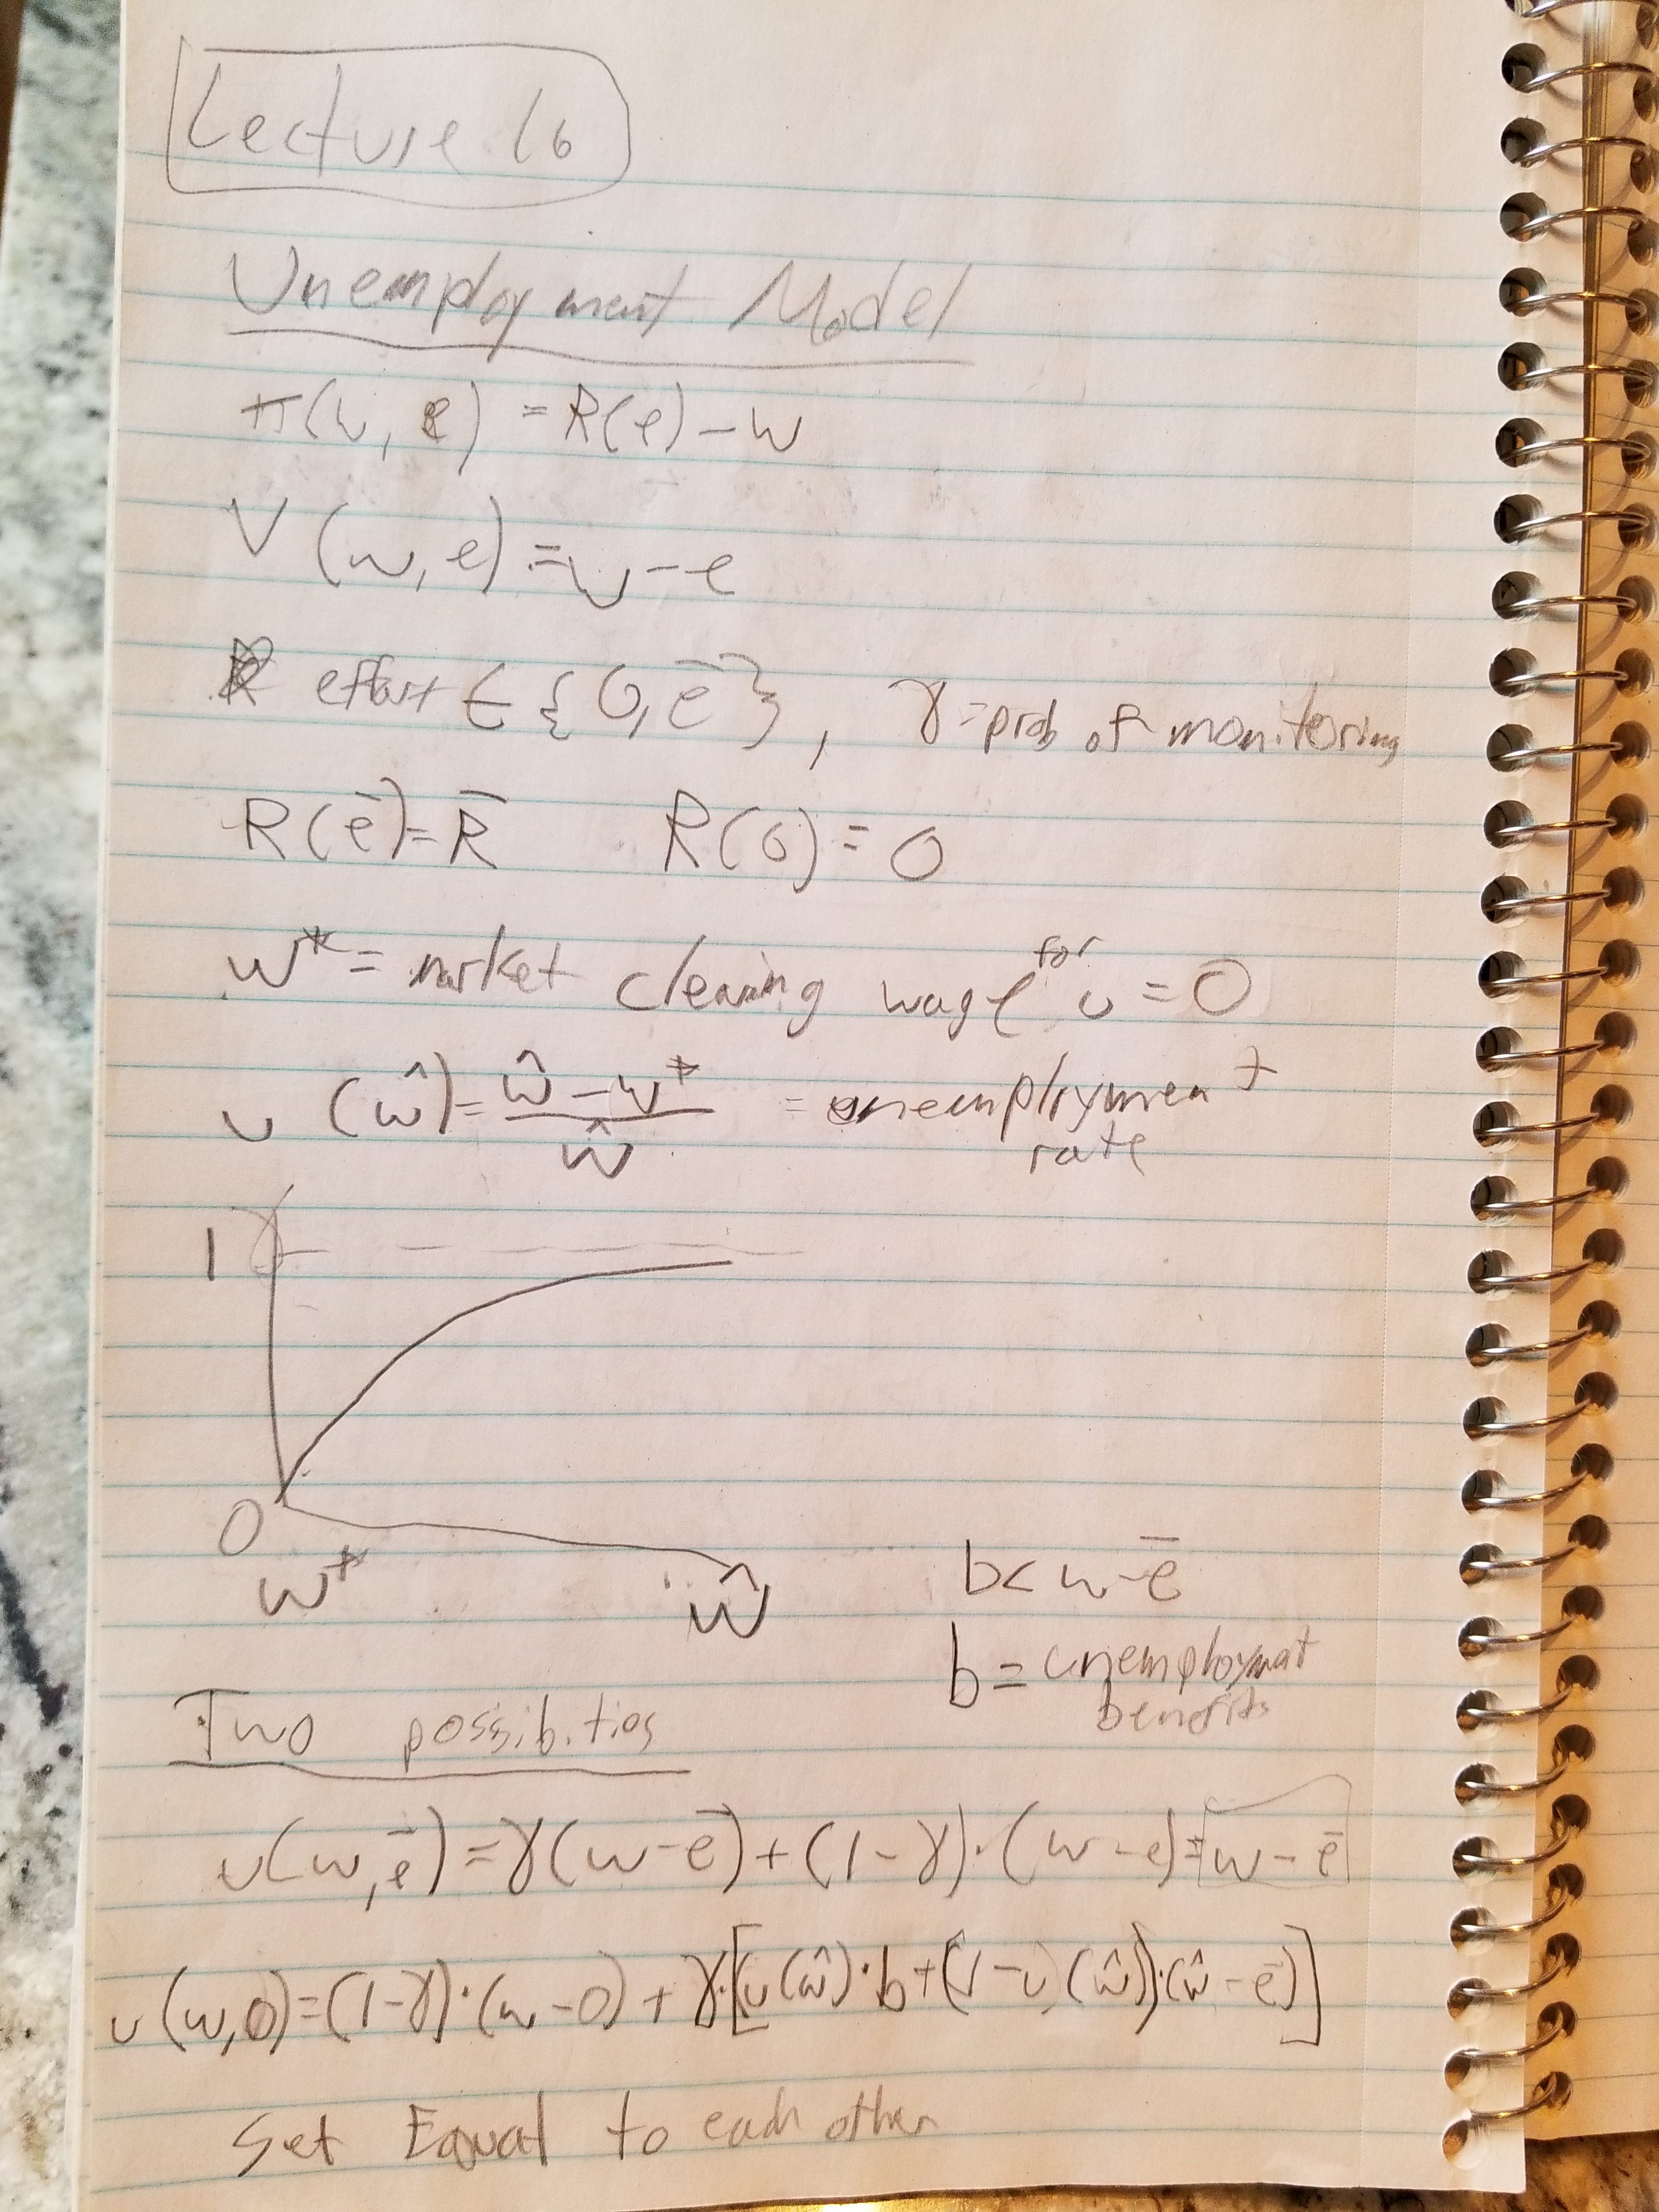 Lecture 16
Unemployment Model
π(w, e) = R(e) - w
V (w, e) = w - e
effort ∈ {0, e̅}, γ = prob of monitoring
R(e̅) = R̅ R(0) = 0
w* = market clearing wage for u = 0
u (ŵ) = (ŵ - w*)/ŵ = unemployment
rate
1
0
w* ŵ
b < w - e̅
b = unemploymat
benefits
Two possibities
u(w, e̅) = γ(w - e̅) + (1 - γ)·(w - e) = w - e̅
u(w, 0) = (1-γ)·(w - 0) + γ·[u(ŵ)·b + (1 - u(ŵ))·(ŵ - e̅)]
Set Equal to each other